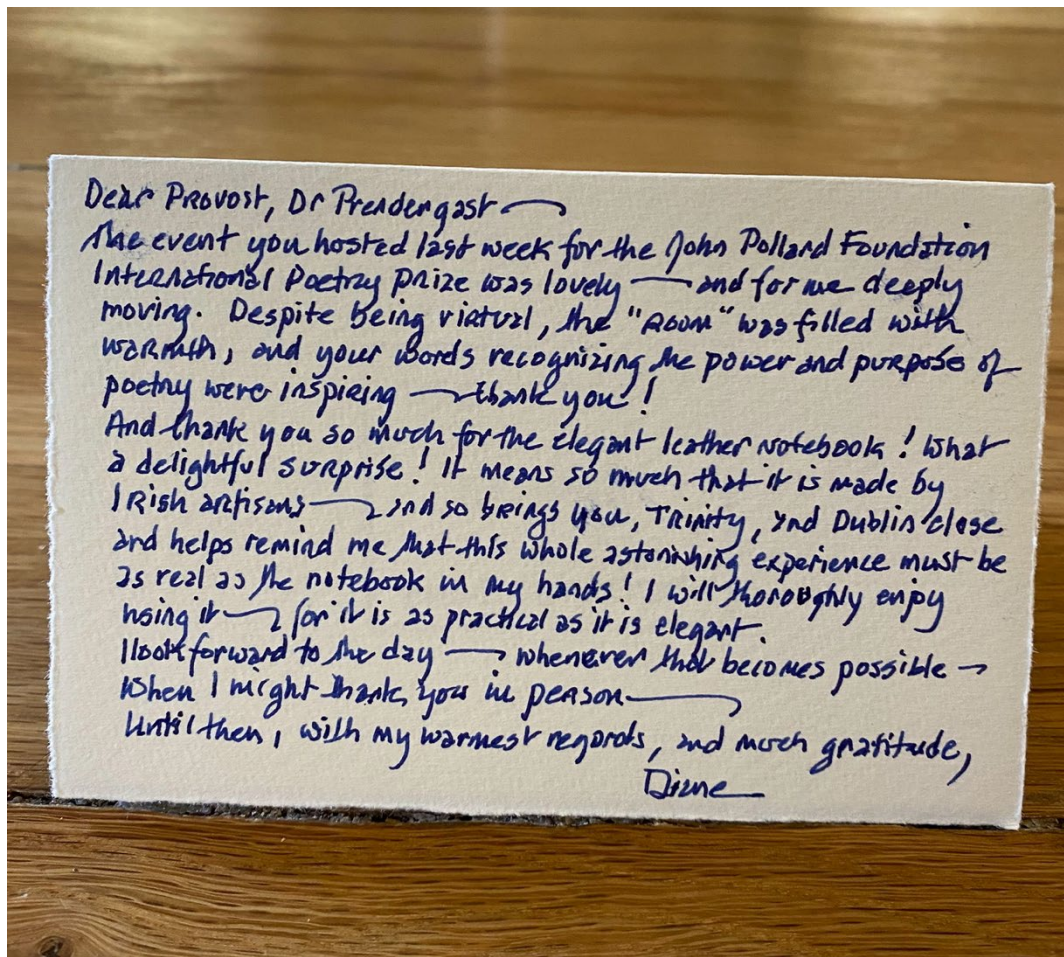 Dear Provost, Dr Prendergast —
The event you hosted last week for the John Pollard Foundation
International Poetry Prize was lovely — and for me deeply
moving. Despite being virtual, the "room" was filled with
warmth, and your words recognizing the power and purpose of
poetry were inspiring — thank you!
And thank you so much for the elegant leather notebook! What
a delightful surprise! It means so much that it is made by
Irish artisans — and so brings you, Trinity, and Dublin close
and helps remind me that this whole astonishing experience must be
as real as the notebook in my hands! I will thoroughly enjoy
using it — for it is as practical as it is elegant.
I look forward to the day — whenever that becomes possible —
When I might thank you in person —
Until then, with my warmest regards, and much gratitude,
Diane